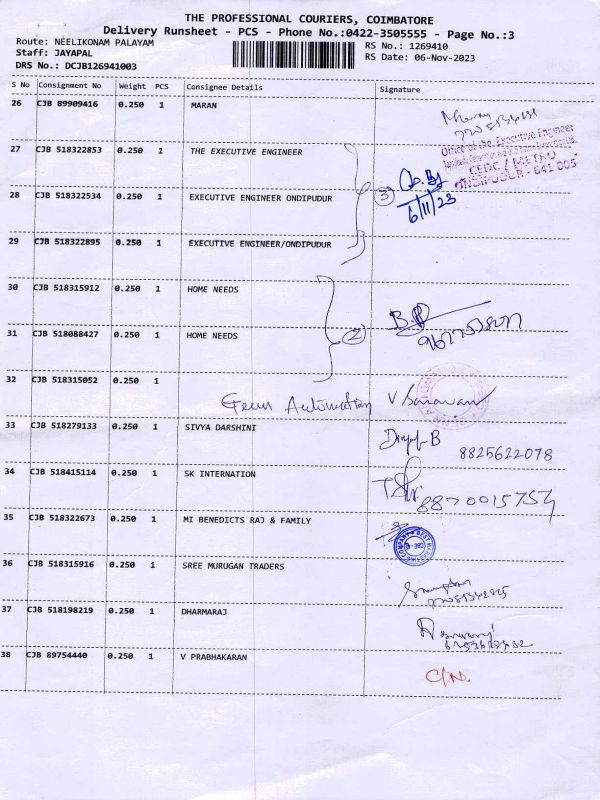 THE PROFESSIONAL COURIERS, COIMBATORE
Delivery Runsheet - PCS - Phone No.:0422-3505555 - Page No.:3
Route: NEELIKONAM PALAYAM
RS No.: 1269410
Staff: JAYAPAL
RS Date: 06-Nov-2023
DRS No.: DCJB126941003
S No Consignment No Weight PCS Consignee Details Signature
26 CJB 89909416 0.250 1 MARAN
27 CJB 518322853 0.250 1 THE EXECUTIVE ENGINEER
Office of the Executive Engineer
CEDC / METRO
ONDIPUDUR - 641 005
28 CJB 518322534 0.250 1 EXECUTIVE ENGINEER ONDIPUDUR
3
6/11/23
29 CJB 518322895 0.250 1 EXECUTIVE ENGINEER/ONDIPUDUR
30 CJB 518315912 0.250 1 HOME NEEDS
31 CJB 518088427 0.250 1 HOME NEEDS
2
32 CJB 518315052 0.250 1
Automation V Saravanan
33 CJB 518279133 0.250 1 SIVYA DARSHINI
8825622078
34 CJB 518415114 0.250 1 SK INTERNATION
8870015754
35 CJB 518322673 0.250 1 MI BENEDICTS RAJ & FAMILY
36 CJB 518315916 0.250 1 SREE MURUGAN TRADERS
37 CJB 518198219 0.250 1 DHARMARAJ
38 CJB 89754440 0.250 1 V PRABHAKARAN
C/N.